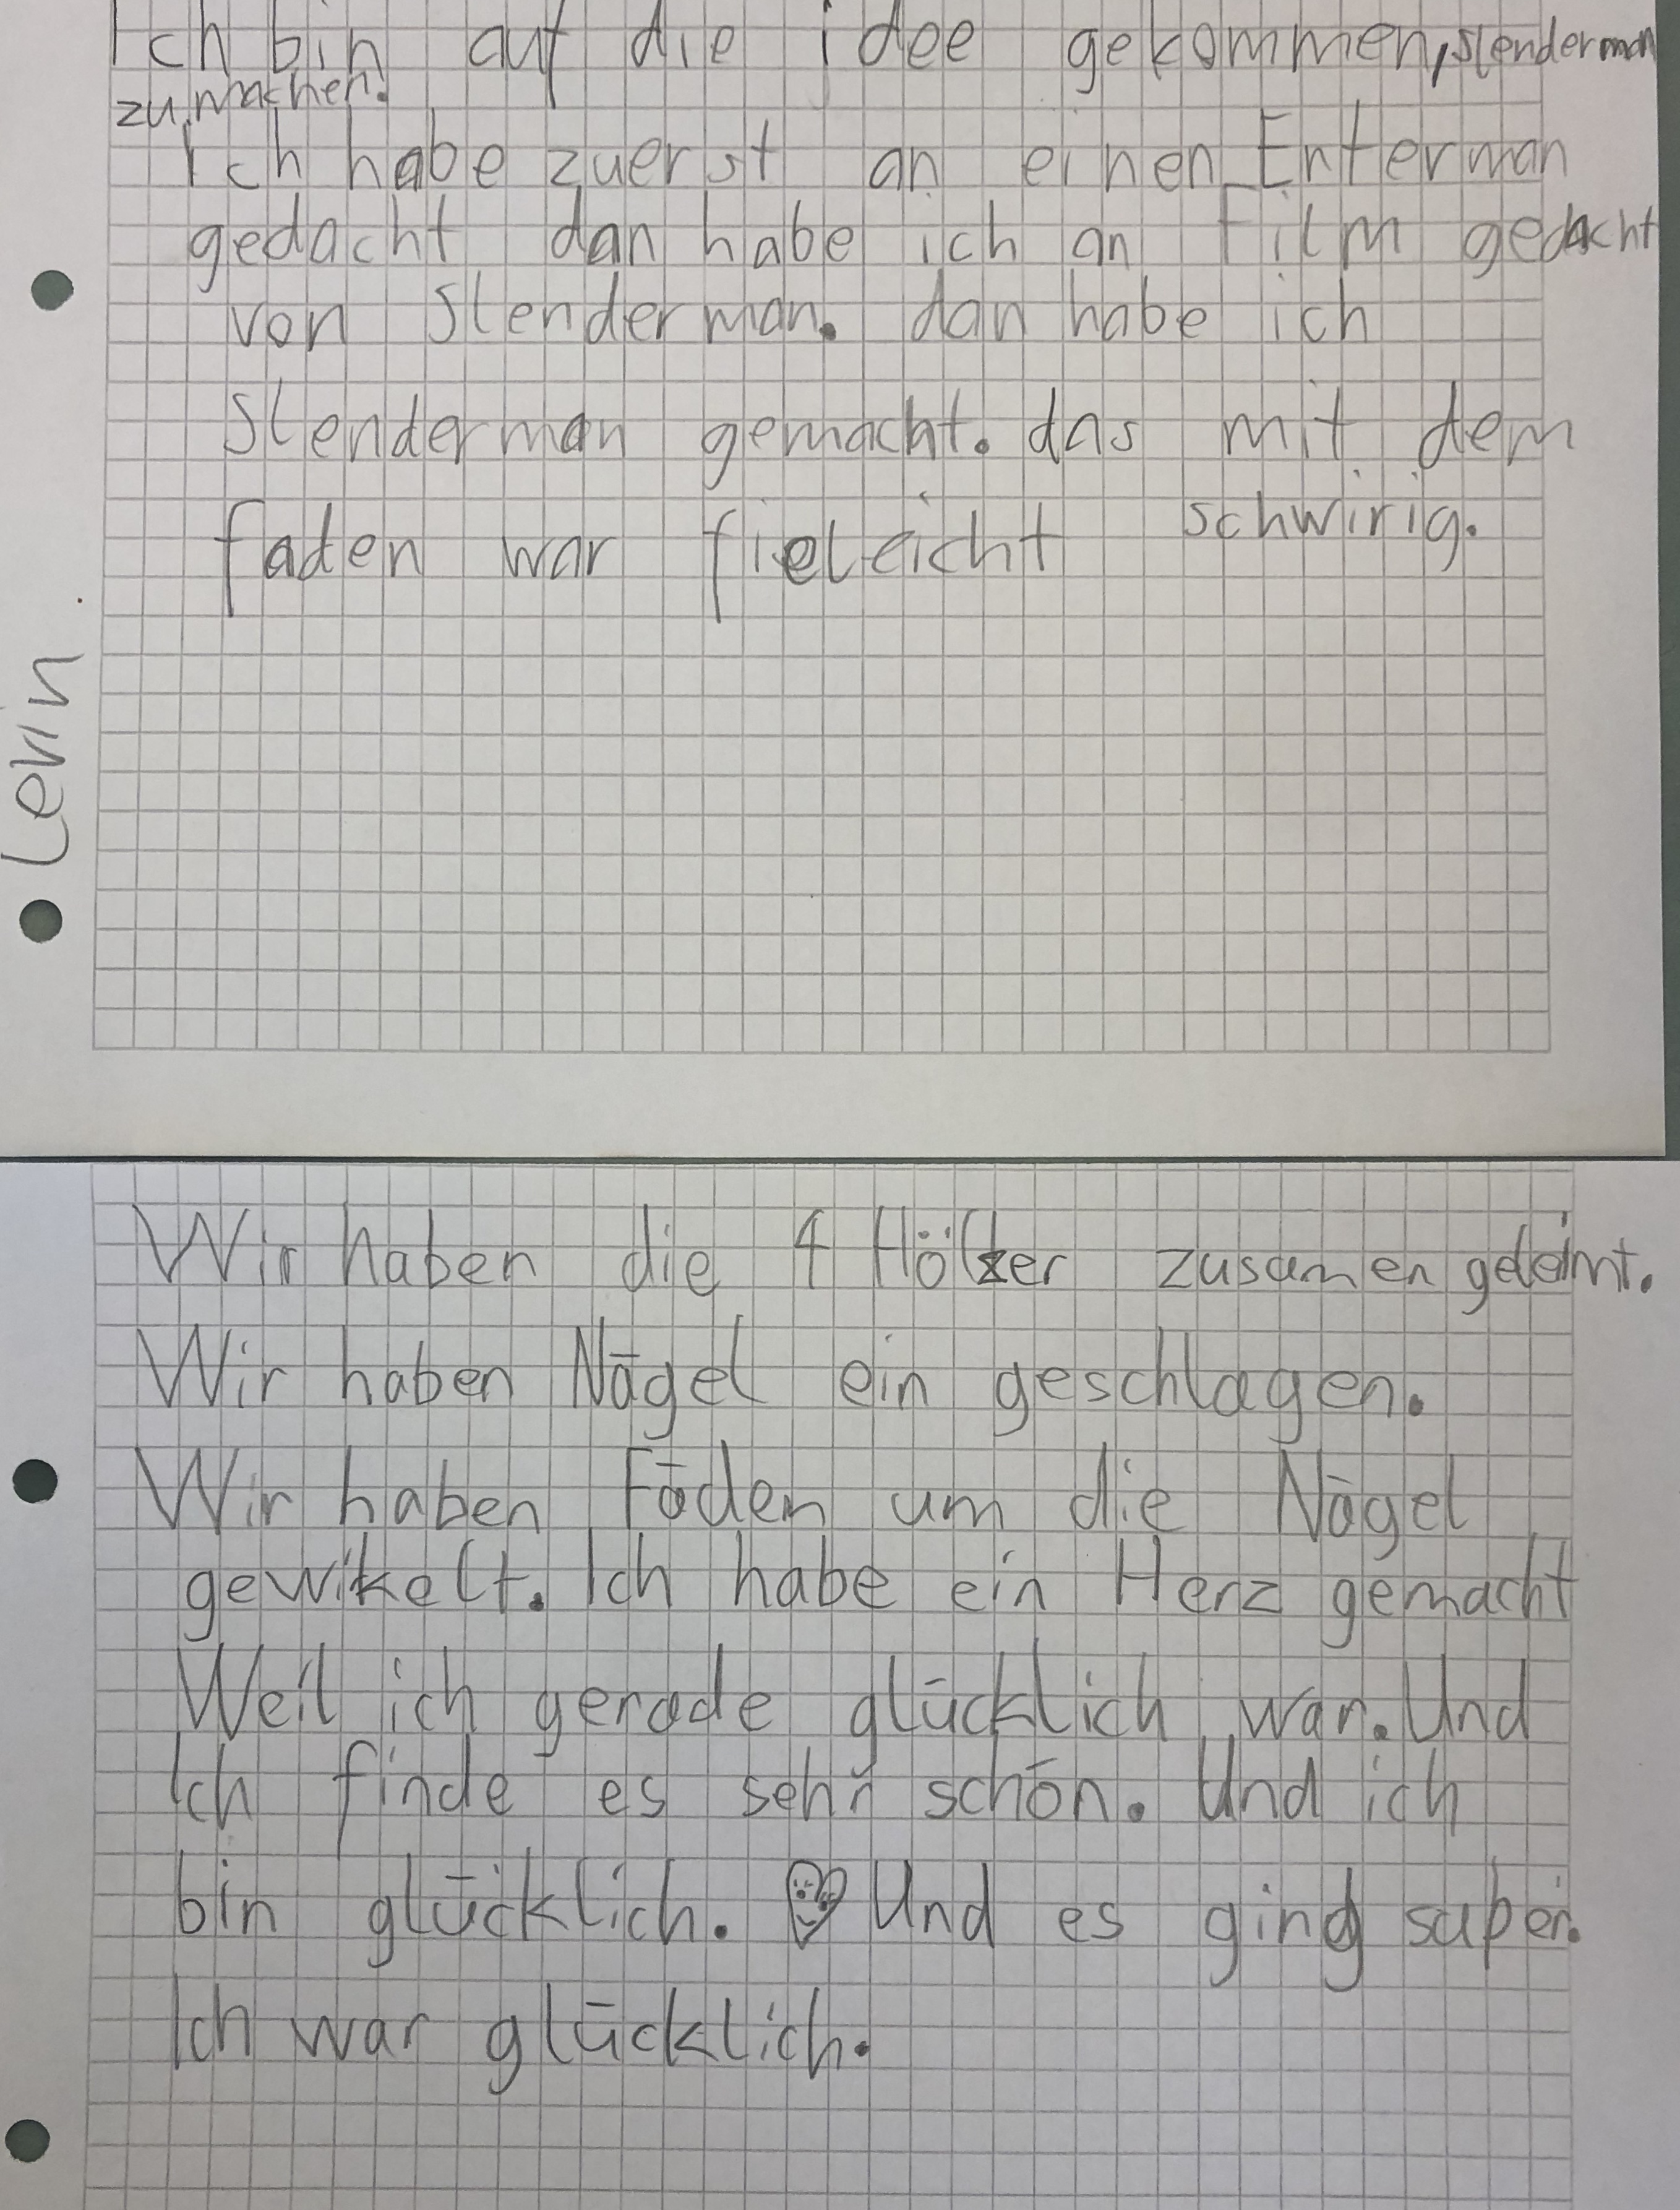 Ich bin auf die idee gekommen, slenderman
zu machen.
Ich habe zuerst an einen Enterman
gedacht dan habe ich an Film gedacht
von Slenderman. dan habe ich
Slenderman gemacht. das mit dem
faden war fieleicht schwirig.
Levin
Wir haben die 4 Hölzer zusamen geleimt.
Wir haben Nägel ein geschlagen.
Wir haben Fäden um die Nägel
gewikelt. Ich habe ein Herz gemacht
Weil ich gerade glücklich war. Und
Ich finde es sehr schön. Und ich
bin glücklich. Und es ging super.
Ich war glücklich.